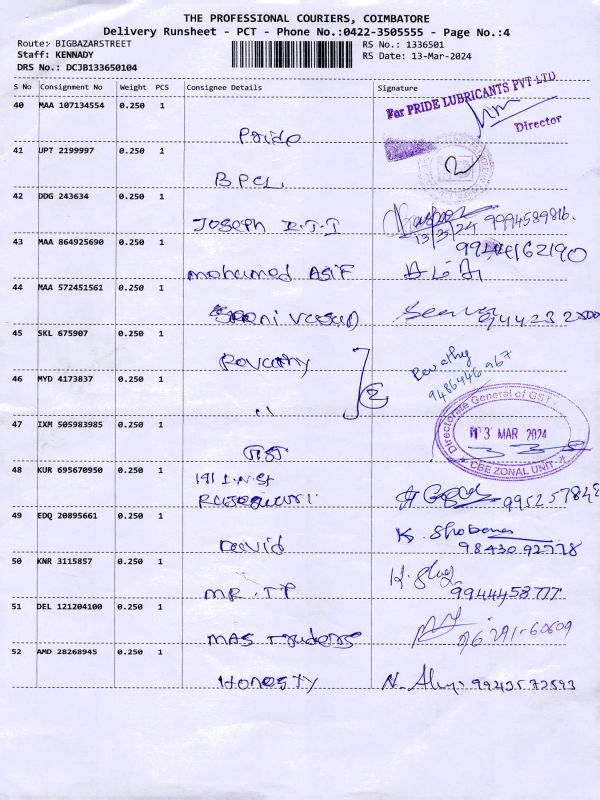 THE PROFESSIONAL COURIERS, COIMBATORE
Delivery Runsheet - PCT - Phone No.:0422-3505555 - Page No.:4
Route: BIGBAZARSTREET
RS No.: 1336501
Staff: KENNADY
RS Date: 13-Mar-2024
DRS No.: DCJB133650104
S No Consignment No Weight PCS Consignee Details Signature
40 MAA 107134554 0.250 1
For PRIDE LUBRICANTS PVT LTD
Director
Pride
41 UPT 2199997 0.250 1
BPCL
42 DDG 243634 0.250 1
JOSEPH
13/3/24 9994589816.
43 MAA 864925690 0.250 1
mohamed ASIF
44 MAA 572451561 0.250 1
45 SKL 675907 0.250 1
Revathy
Revathy
9486446967
46 MYD 4173837 0.250 1
"
2
47 IXM 505983985 0.250 1
GST
Directorate General of GST
13 MAR 2024
CBE ZONAL UNIT
48 KUR 695670950 0.250 1
49 EDQ 20895661 0.250 1
David
K. Shobana
98430.92778
50 KNR 3115857 0.250 1
MR. TP
9944458777
51 DEL 121204100 0.250 1
MAS Traders
52 AMD 28268945 0.250 1
Honesty